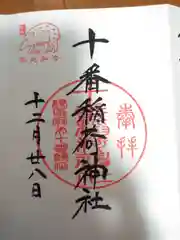 奉拝
十番稲荷神社
十二月廿八日